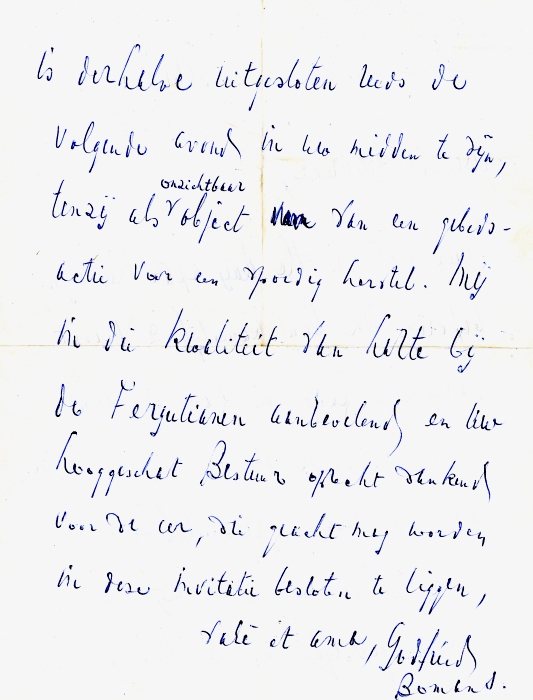 is derhalve uitgesloten reeds de
volgende avond in uw midden te zijn,
onzichtbaar
tenzij als object van een gebeds-
actie voor een spoedig herstel. Mij
in die kwaliteit van harte bij
de Fergutianen aanbevelend en Uw
hooggeschat Bestuur oprecht dankend
voor de eer, die geacht mag worden
in deze invitatie besloten te liggen,
vale et ama, Godfried
Bomans.